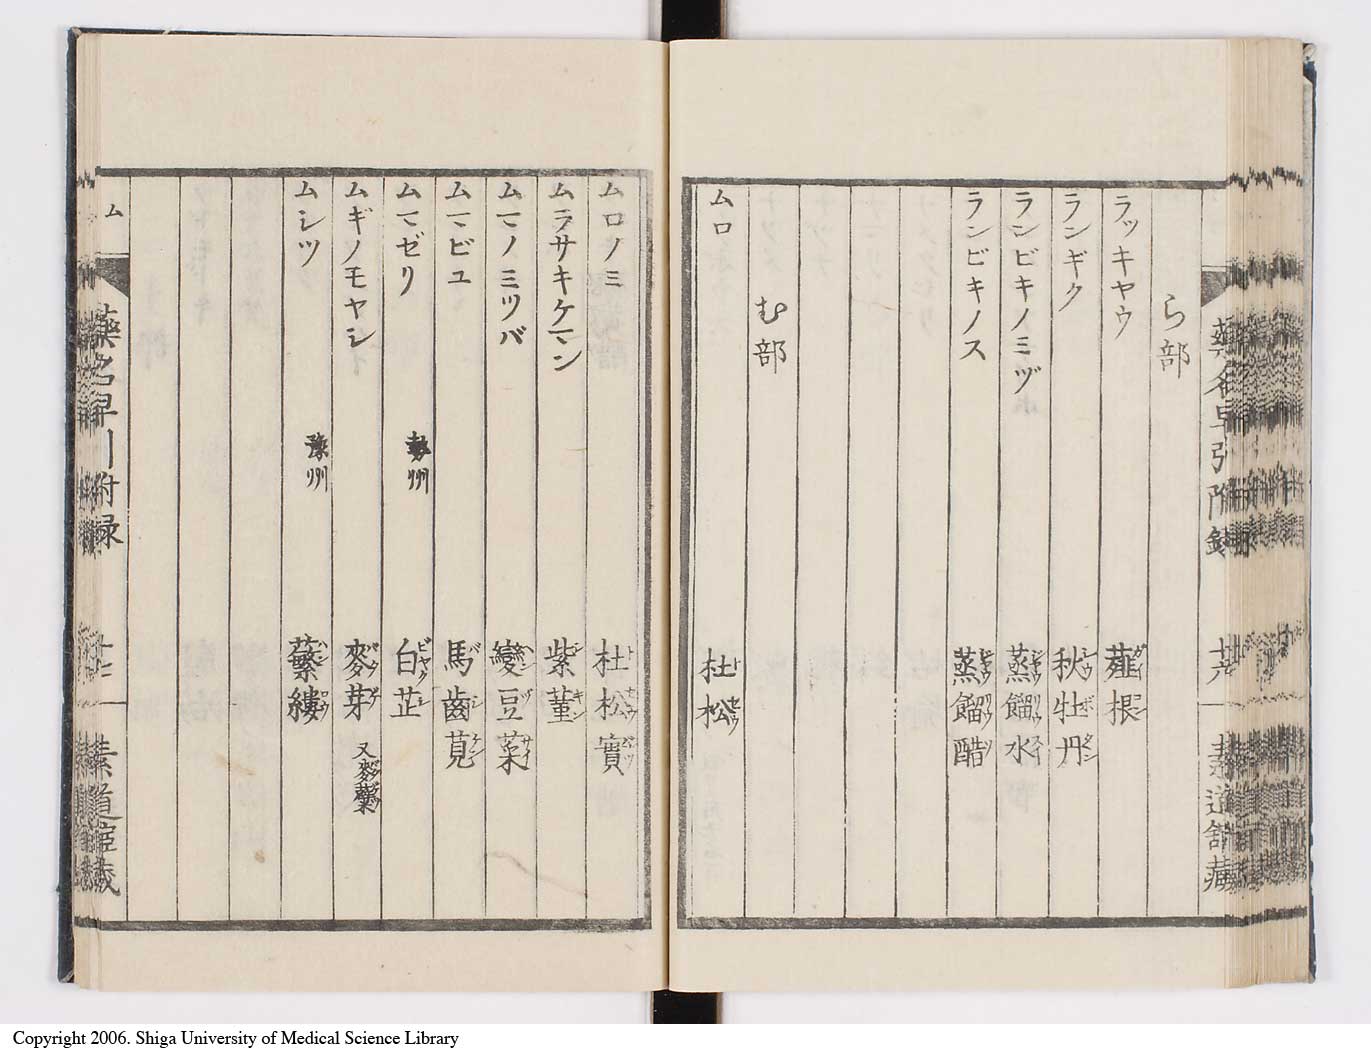 藥名早引附録
十六
素道舘藏
ら部
ラッキヤウ 薤根
ランギク 秋牡丹
ランビキノミヅ 蒸餾水
ランビキノス 蒸餾醋
む部
ムロ 杜松
ムロノミ 杜松實
ムラサキケマン 紫菫
ムマノミツバ 變豆菜
ムマビユ 馬齒莧
ムマゼリ 勢州 白芷
ムギノモヤシ 麥芽 又麥蘖
ムシツ 豫州 蘩縷
ム
藥名早引附録
素道舘藏
Copyright 2006. Shiga University of Medical Science Library